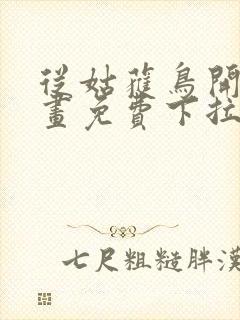 從姑獲鳥開
畫免費下拉
七尺粗糙胖漢